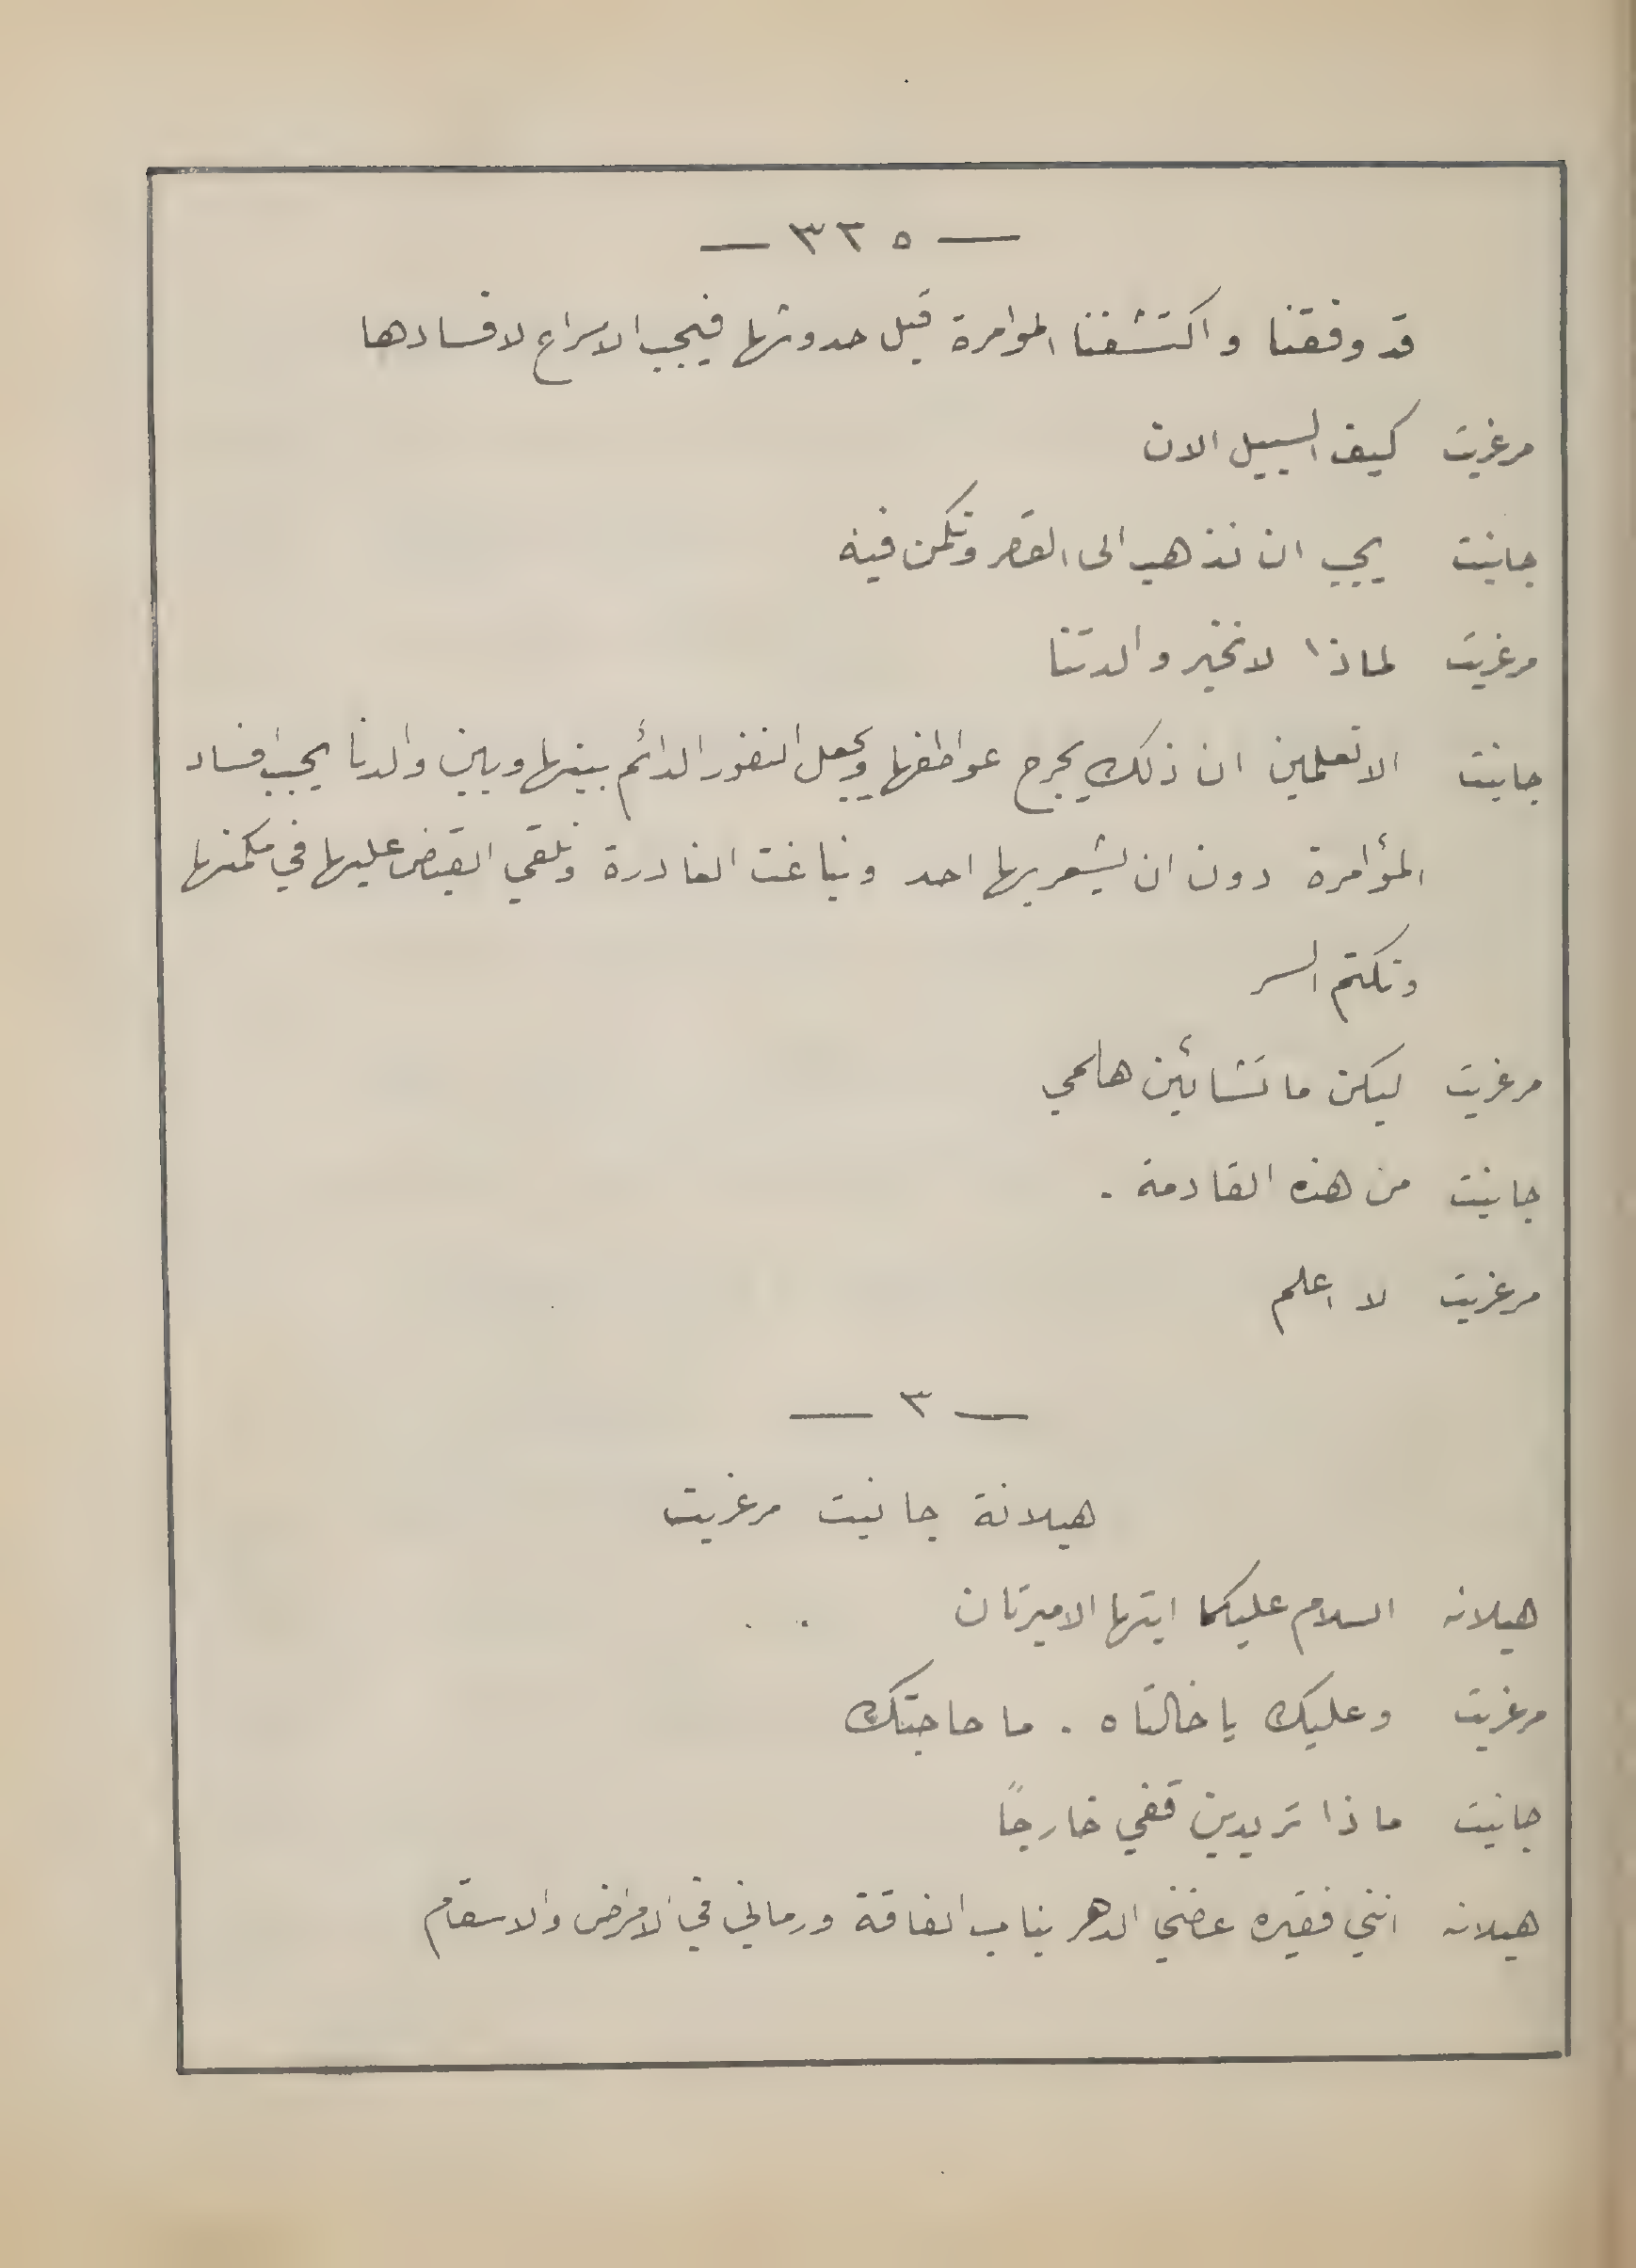 — ٣٢٥ —
قد وفقنا واكتشفنا الموامرة قبل حدوثها فيجب الاسراع لافسادها
مرغريت كيف السبيل الان
جانيت يجب ان نذهب الى القصر ونكمن فيه
مرغريت لماذا لا نخبر والدتنا
جانيت الا تعلمين ان ذلك يجرح عواطفها ويجعل النفور الدائم بينها وبين والدنا يجب افساد
المؤامرة دون ان يشعر بها احد ونباغت الغادرة ونلقي القبض عليها في مكمنها
ونكتم السر
مرغريت ليكن ما تشائين هلمي
جانيت من هذه القادمة .
مرغريت لا اعلم
— ٣ —
هيلانة جانيت مرغريت
هيلانه السلام عليكما ايتها الاميرتان
مرغريت وعليك يا خالتاه . ما حاجتك
جانيت ماذا تريدين قفي خارجًا
هيلانه انني فقيره عضني الدهر بناب الفاقة ورماني في الامراض والاسقام